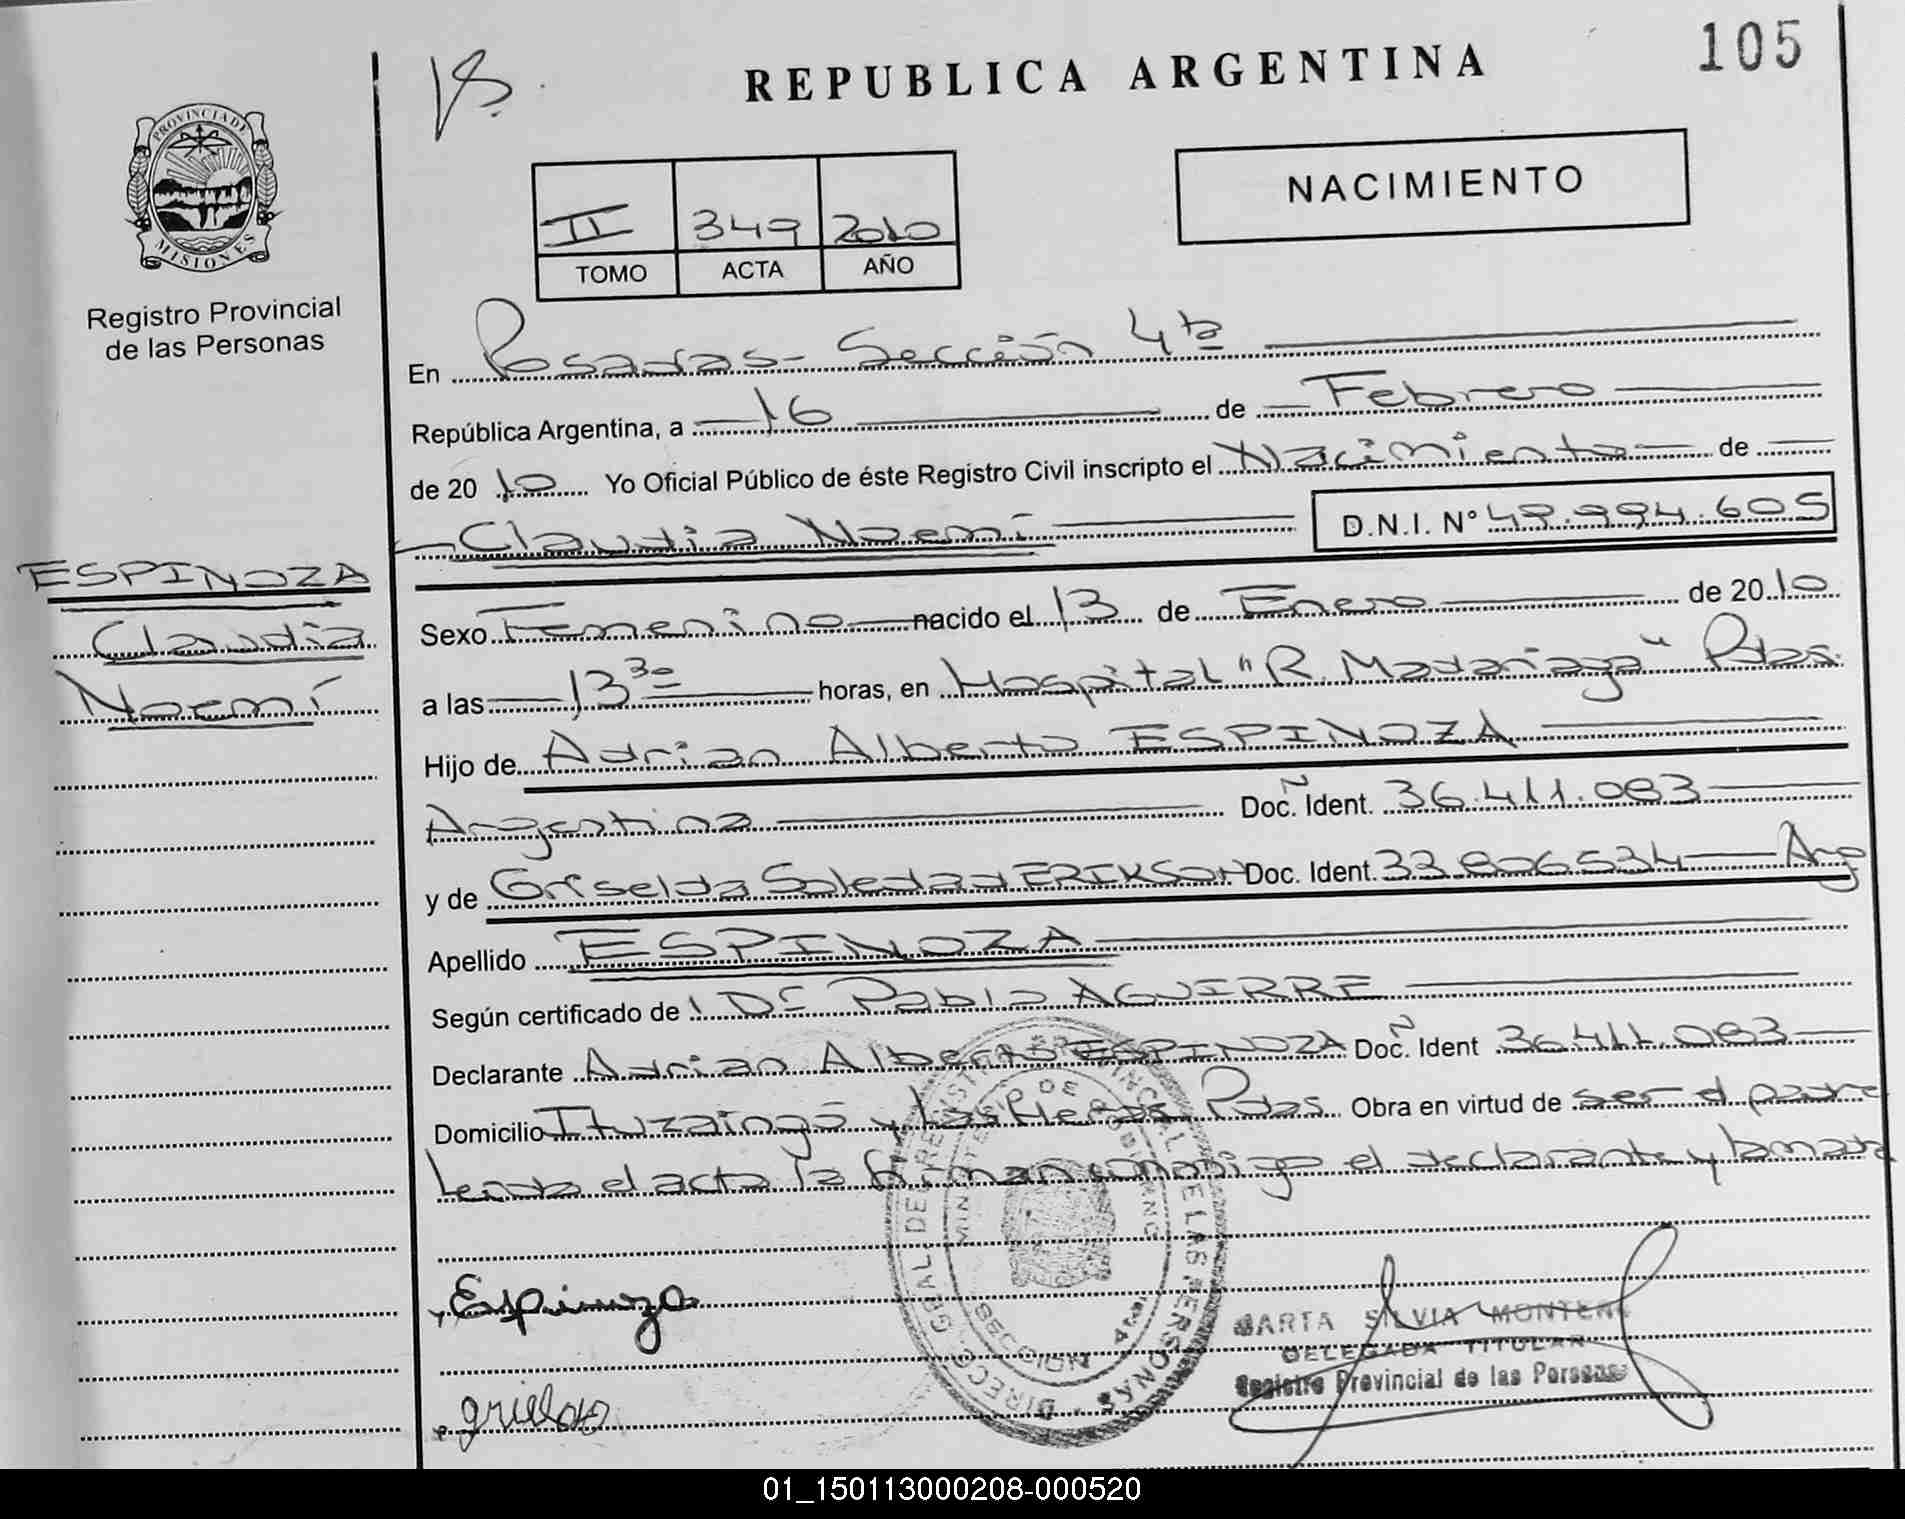 105
VB.
REPUBLICA ARGENTINA
PROVINCIA DE
MISIONES
Registro Provincial
de las Personas
II 349 2010
TOMO ACTA AÑO
NACIMIENTO
En Posadas - Sección 4ta
República Argentina, a 16 de Febrero
de 2010 Yo Oficial Público de éste Registro Civil inscripto el Nacimiento de
Claudia Noemí D.N.I. N° 49.994.605
ESPINOZA
Claudia
Noemí
Sexo Femenino nacido el 13 de Enero de 2010
a las 13 30 horas, en Hospital "R. Madariaga" Pdas.
Hijo de Adrian Alberto ESPINOZA
Argentina Doc. N Ident. 36.411.083
y de Griselda Soledad ERIKSON Doc. Ident. 33.806534 Arg
Apellido ESPINOZA
Según certificado de Dr Pablo AGUIRRE
Declarante Adrian Alberto ESPINOZA Doc. N Ident 36.411.083
Domicilio Ituzaingó y Las Heras Pdas. Obra en virtud de ser el padre
Leída el acta la firman conmigo el declarante y la madre
DIRECC. GRAL. DEL REGISTRO PROVINCIAL DE LAS PERSONAS
MINISTERIO DE GOBIERNO
SECCION 4ta
Espinoza
MARTA SILVIA MONTE
DELEGADA TITULAR
Registro Provincial de las Personas
01_150113000208-000520